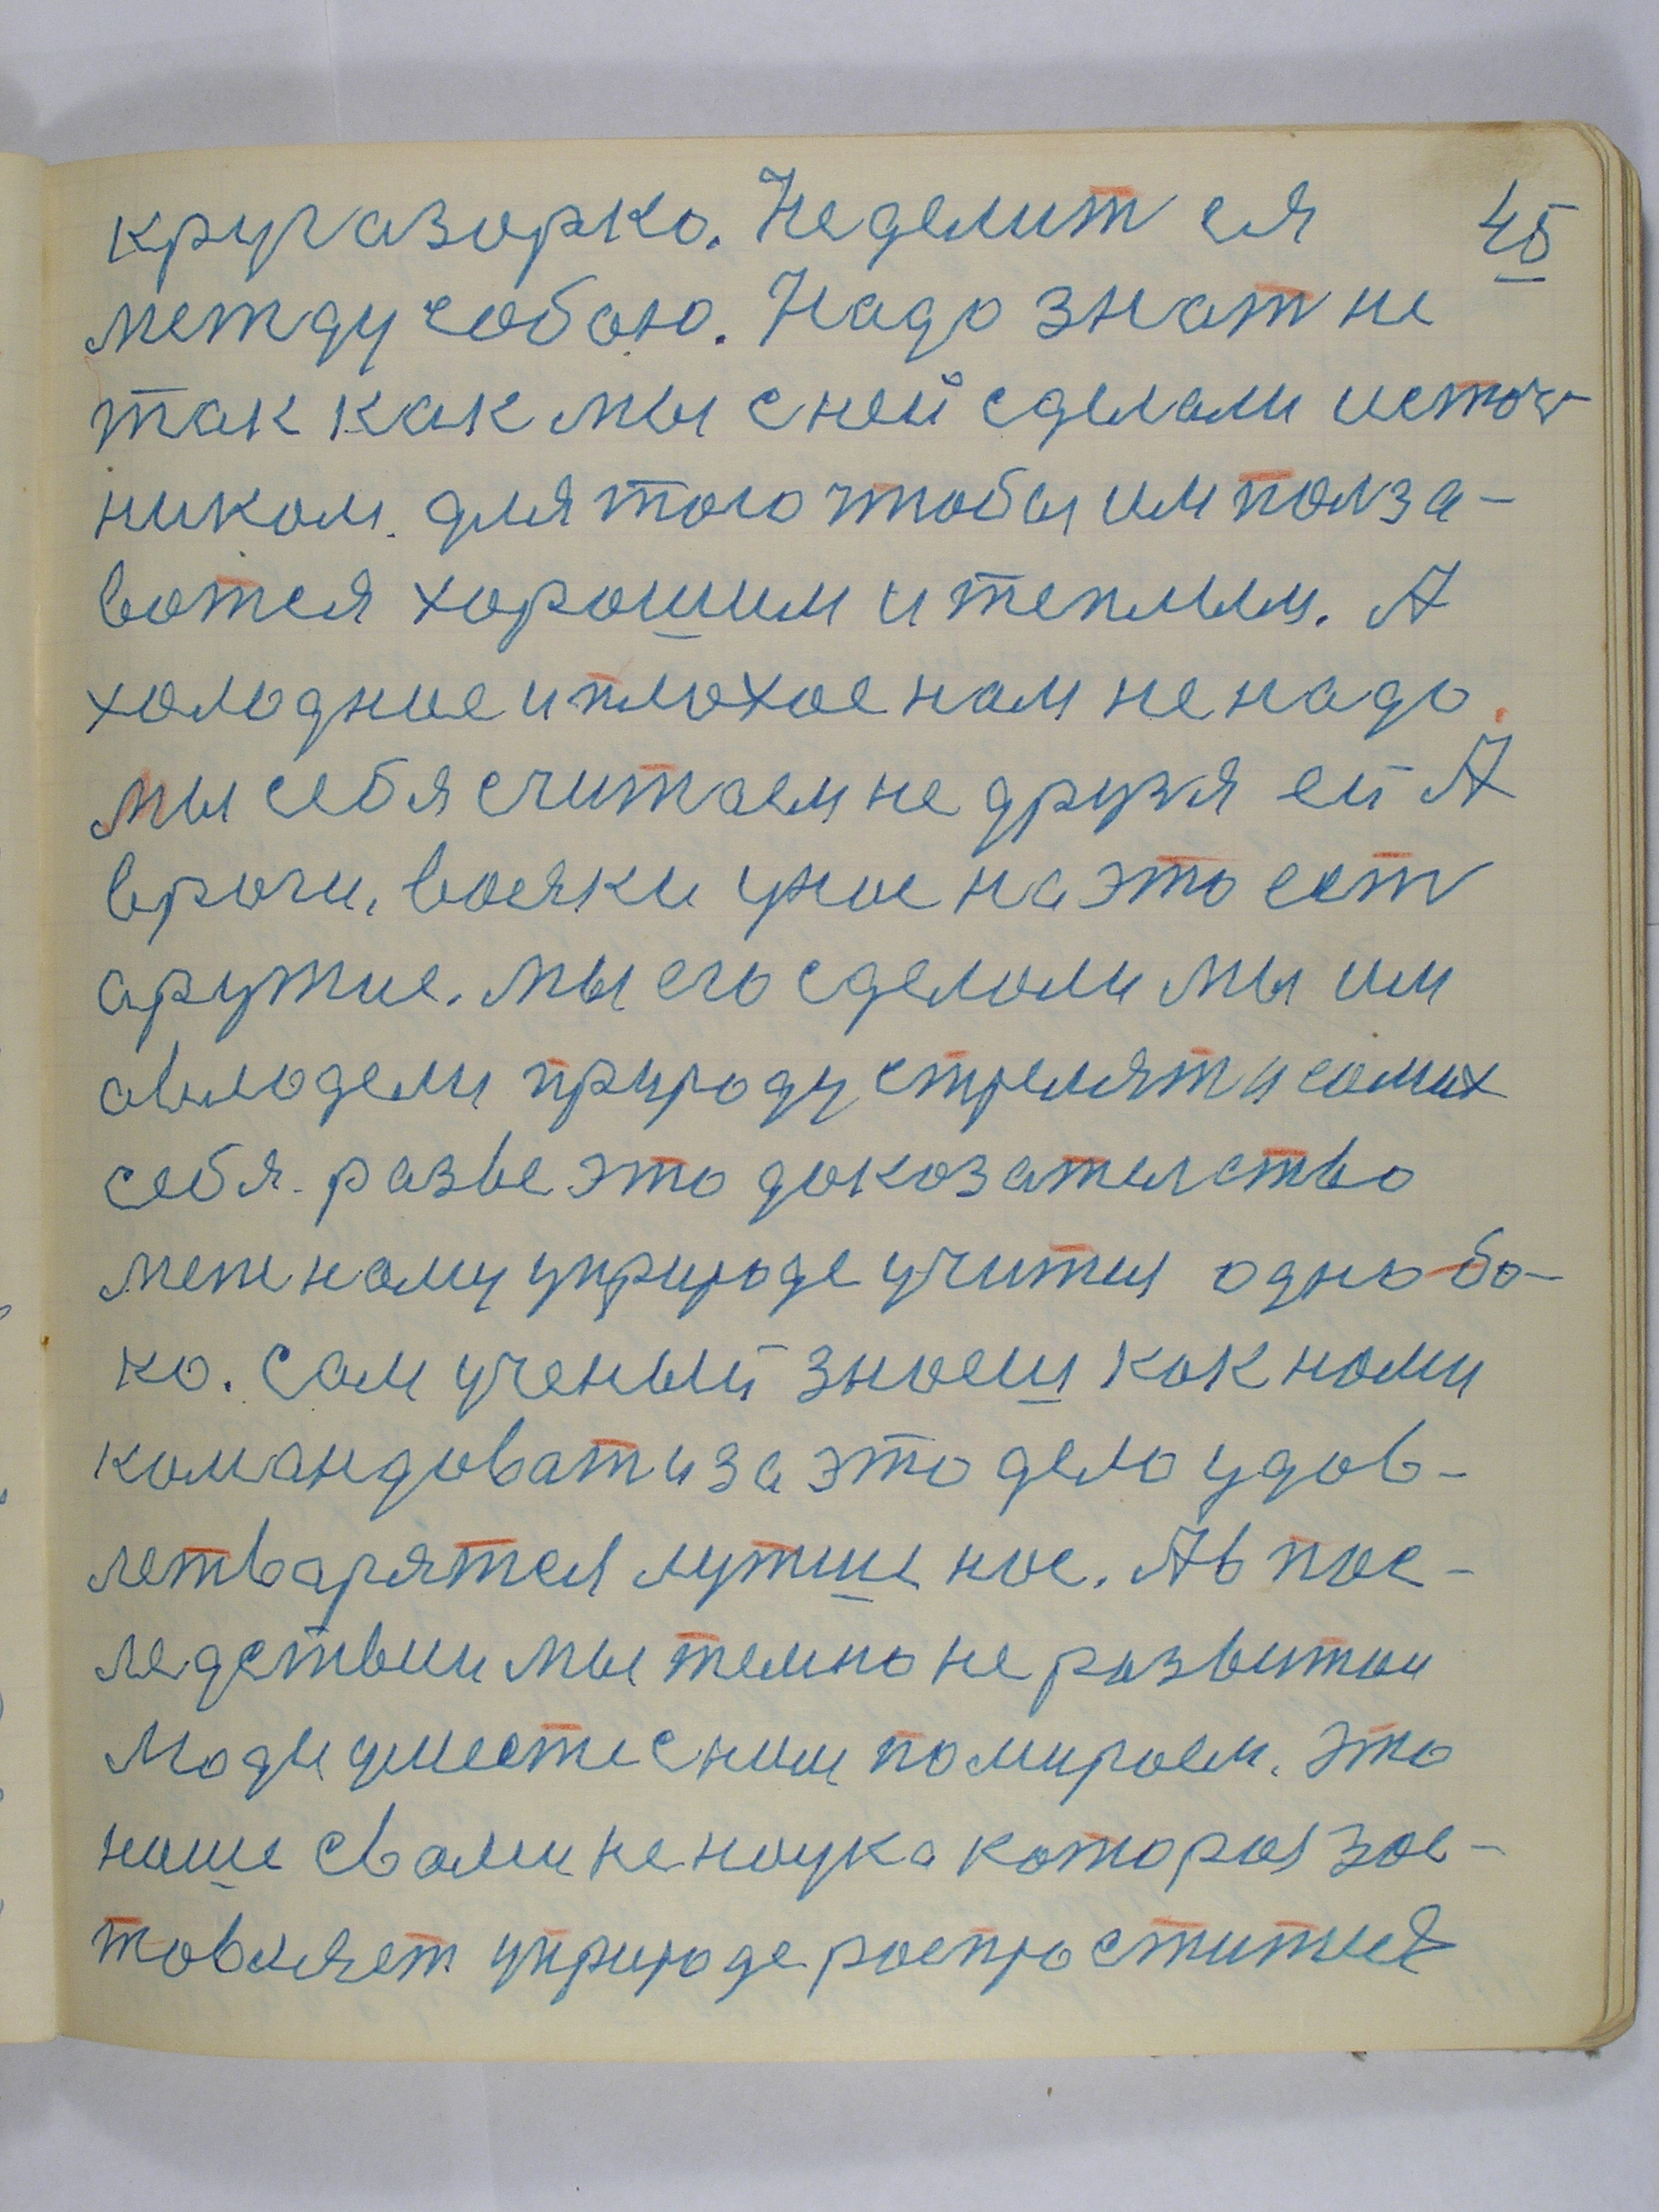 кругазорко. Неделит ея 45
между собою. Надо знат не
так как мы с ней сделали источ-
ником. для того чтобы им полза-
ватся хорошим и теплым. А
холодное и плохое нам не надо.
мы себя считаем не друзя ей А
враги. всяки у нас на это ест
аружие. мы его сделали мы им
овлодели природу стрелят и самих
себя. разве это доказателство
меж наму уприроде учится однобо-
ко. Сам ученый знаеш как нами
командоват и за это дело удов-
летварятся лутше нас. Ав пос-
ледствии мы темно не развитаи
люди умести с ним помираем. это
наше с вами не наука которая зас-
товляет уприроде роспроститися